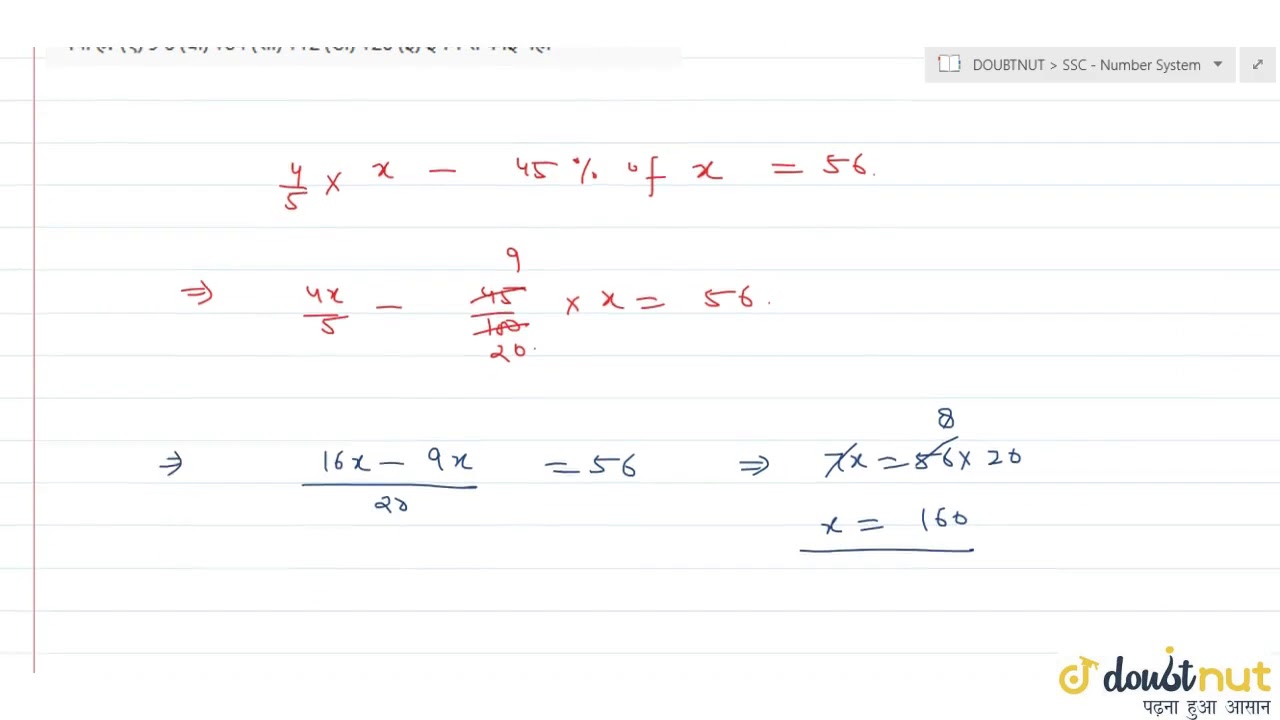 DOUBTNUT > SSC - Number System
4/5 × x - 45 % of x = 56.
9
⇒ 4x/5 - 45/100 × x = 56.
20
8
⇒ 16x - 9x/20 = 56 ⇒ 7x = 56 × 20
x = 160
doubtnut
पढ़ना हुआ आसान